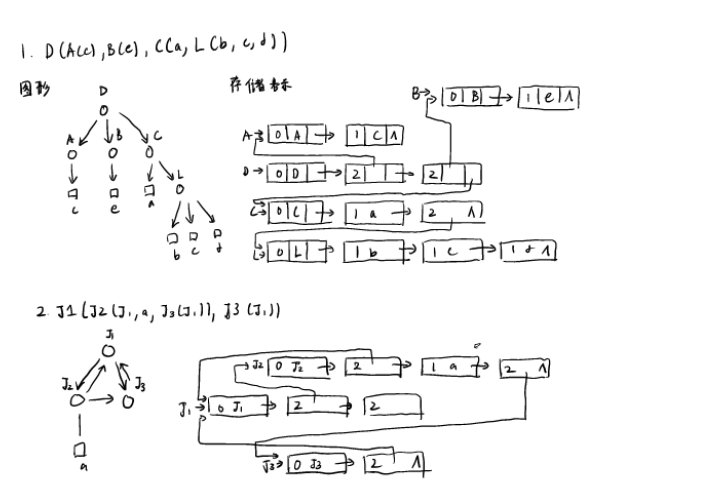 1. D(A(c),B(e),C(a,L(b,c,d)))
图形
存储
D
A B C
L
c e a
b c d
B 0 B 1 e ∧
A 0 A 1 C ∧
D 0 D 2 2
C 0 C 1 a 2 ∧
L 0 L 1 b 1 c 1 d ∧
2. J1(J2(J1,a,J3(J1)),J3(J1))
J1
J2 J3
a
J2 0 J2 2 1 a 2 ∧
J1 0 J1 2 2
J3 0 J3 2 ∧